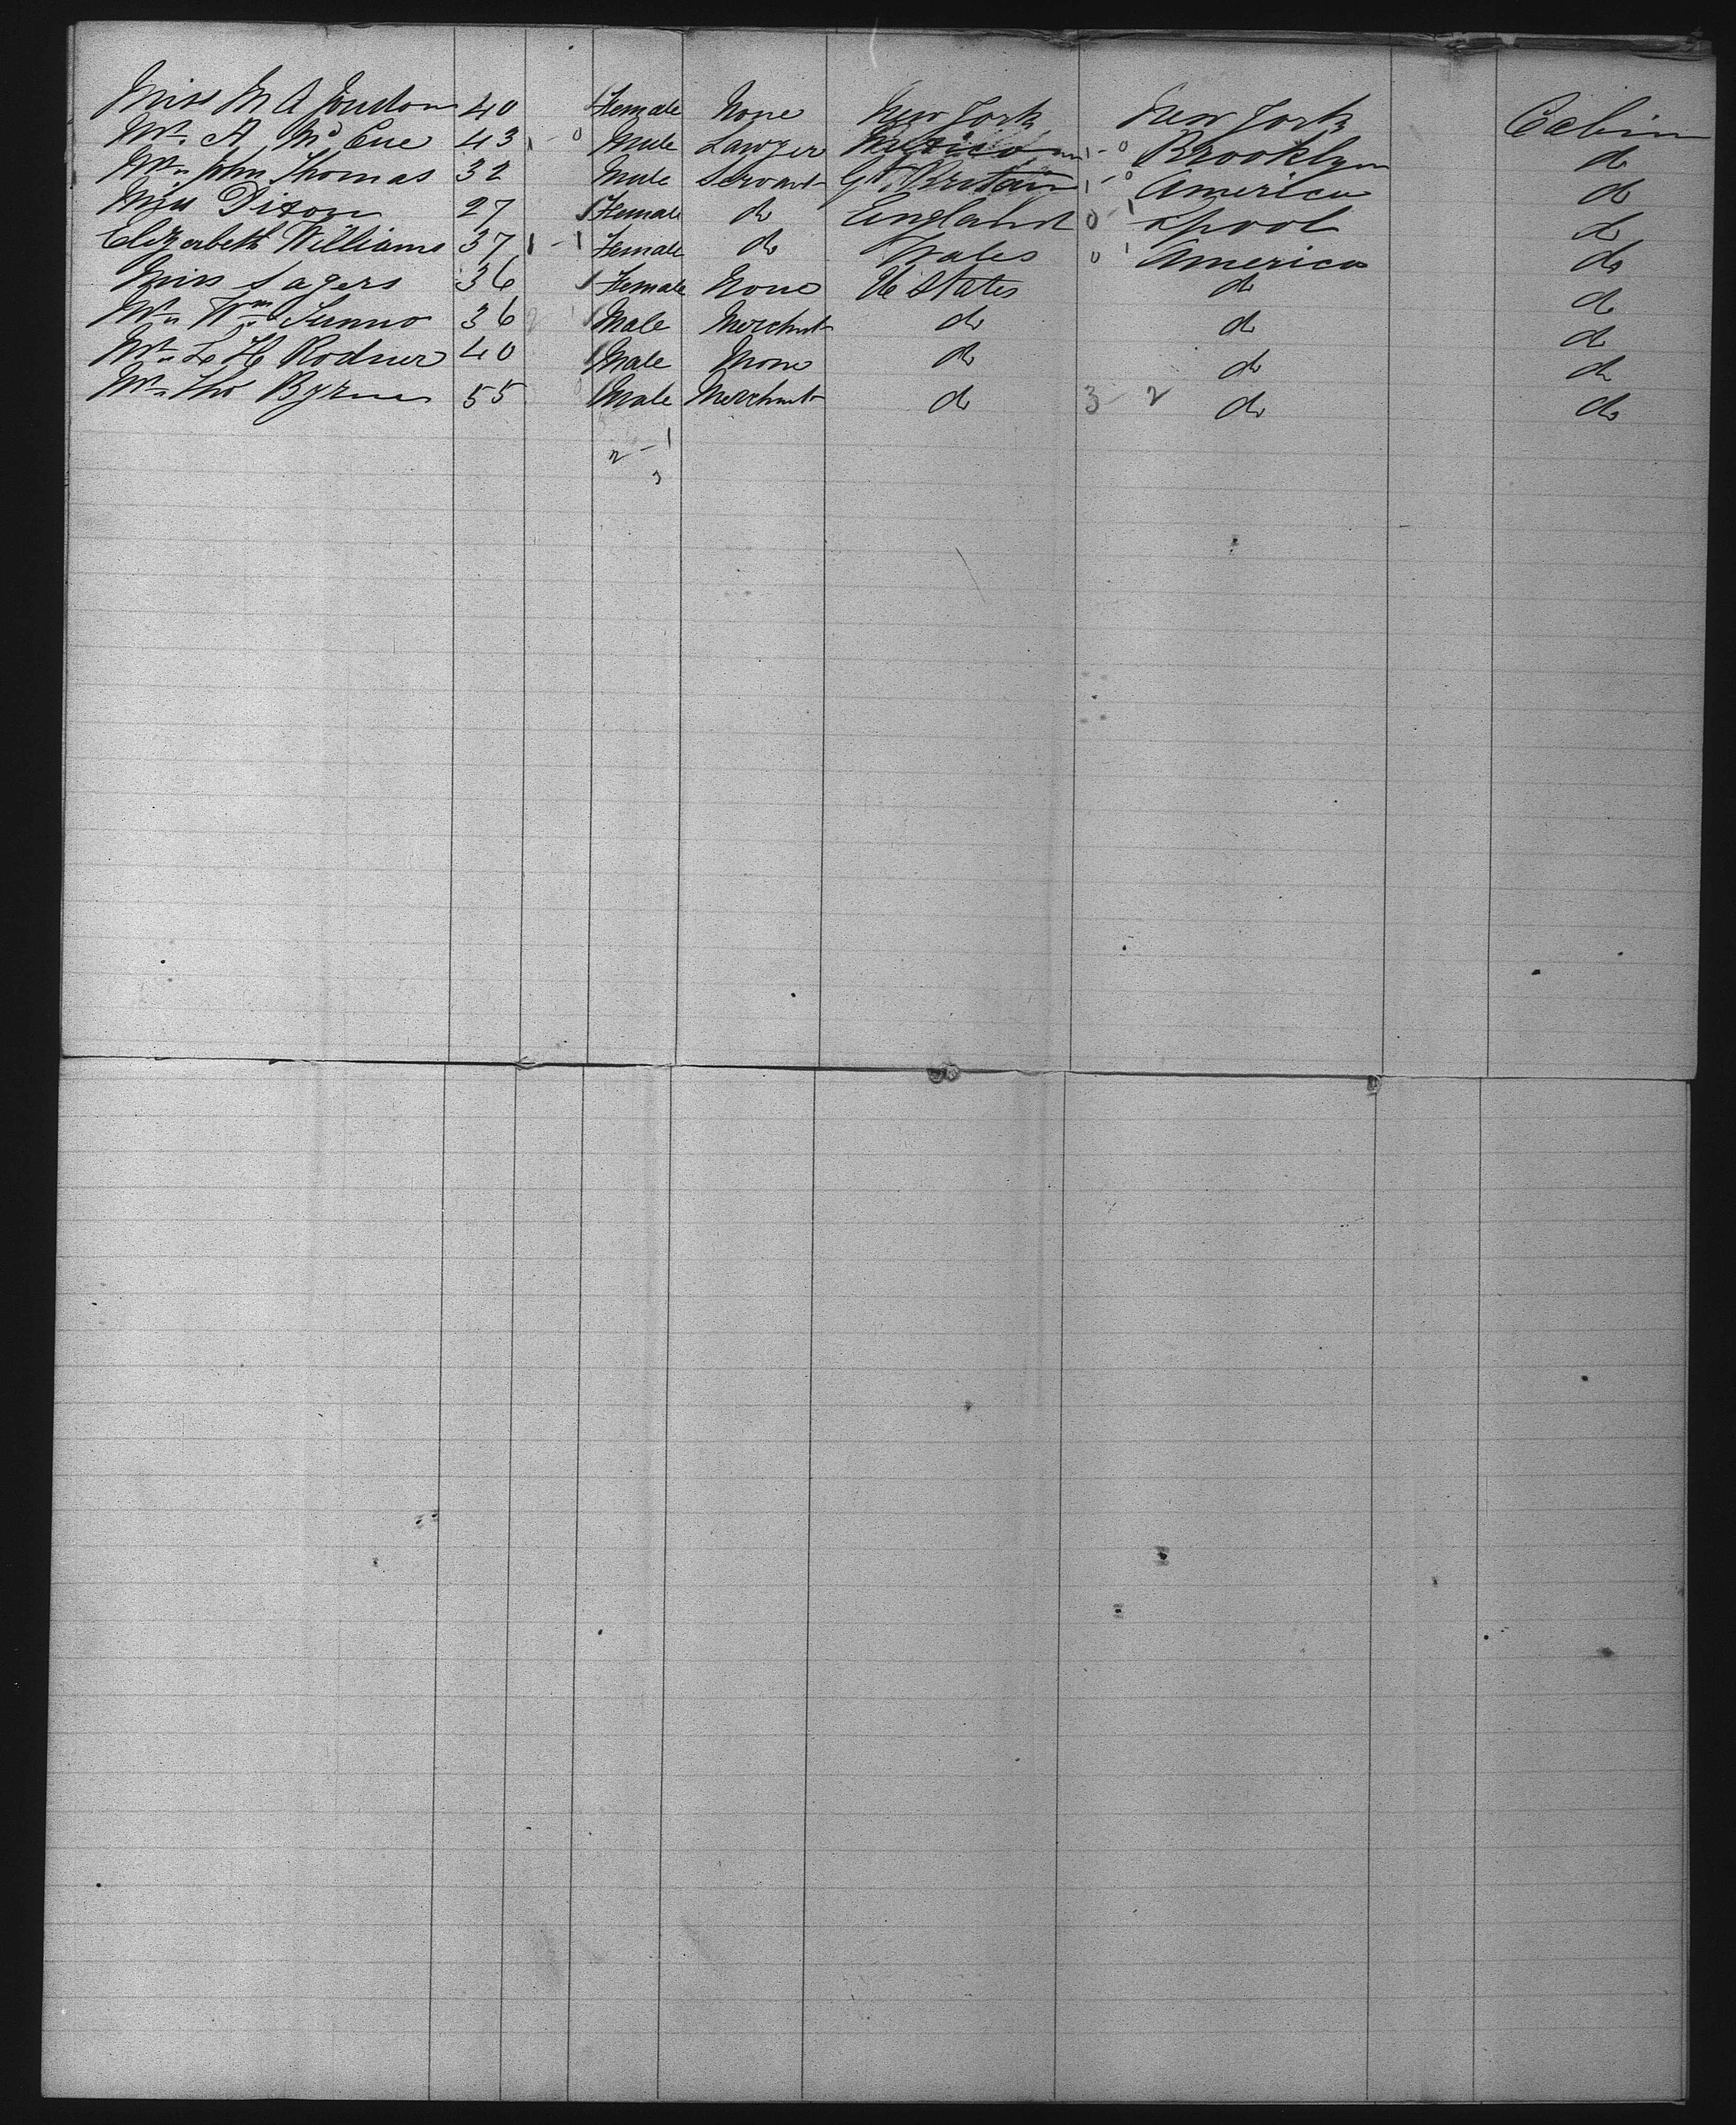 Miss M A Jourdon 40 Female None New York New York Cabin
Mr. A. McCue 43 1 - 0 Male Lawyer Mexico 1 - 0 Brooklyn do
Mr. John Thomas 32 Male Servant Gt. Britain 1 - 0 America do
Miss Dixon 27 1 Female do England 0 - 1 Lpool do
Elizabeth Williams 37 1 - 1 Female do Wales 0 1 America do
Miss Sagers 36 1 Female None U States do do
Mr. Wm 36 1 Male Merchant do do do
Mr. L H Rodner 40 1 Male None do do do
Mr. Tho Byrne 55 Male Merchant do 3 - 2 do do
2 - 1
3